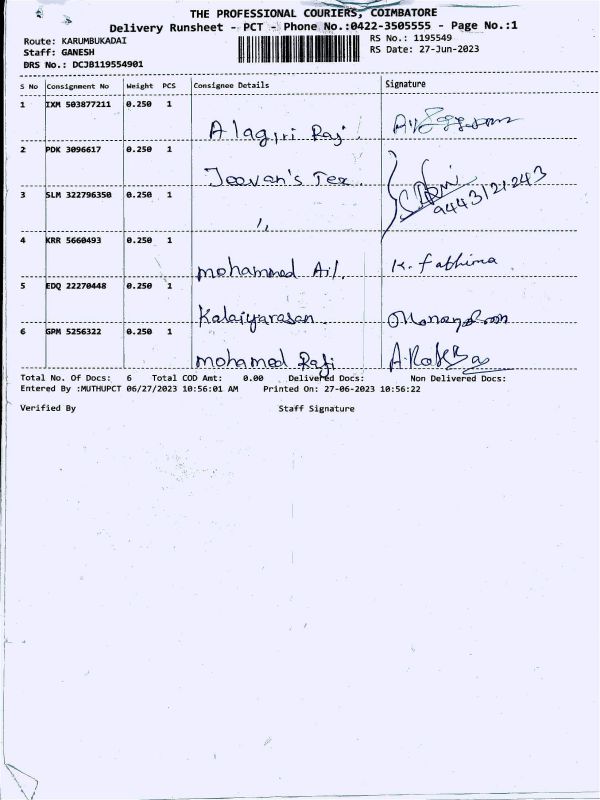 THE PROFESSIONAL COURIERS, COIMBATORE
Delivery Runsheet - PCT - Phone No.:0422-3505555 - Page No.:1
Route: KARUMBUKADAI
RS No.: 1195549
Staff: GANESH
RS Date: 27-Jun-2023
DRS No.: DCJB119554901
S No Consignment No Weight PCS Consignee Details Signature
1 IXM 503877211 0.250 1
Alagiri Raj
2 PDK 3096617 0.250 1
Jeevan's Tex.
3 SLM 322796350 0.250 1
9443121243
"
4 KRR 5660493 0.250 1
mohammed Ail. K. fathima
5 EDQ 22270448 0.250 1
Kalaiyarasan
6 GPM 5256322 0.250 1
mohamed Rafi
Total No. Of Docs: 6 Total COD Amt: 0.00 Delivered Docs: Non Delivered Docs:
Entered By :MUTHUPCT 06/27/2023 10:56:01 AM Printed On: 27-06-2023 10:56:22
Verified By Staff Signature